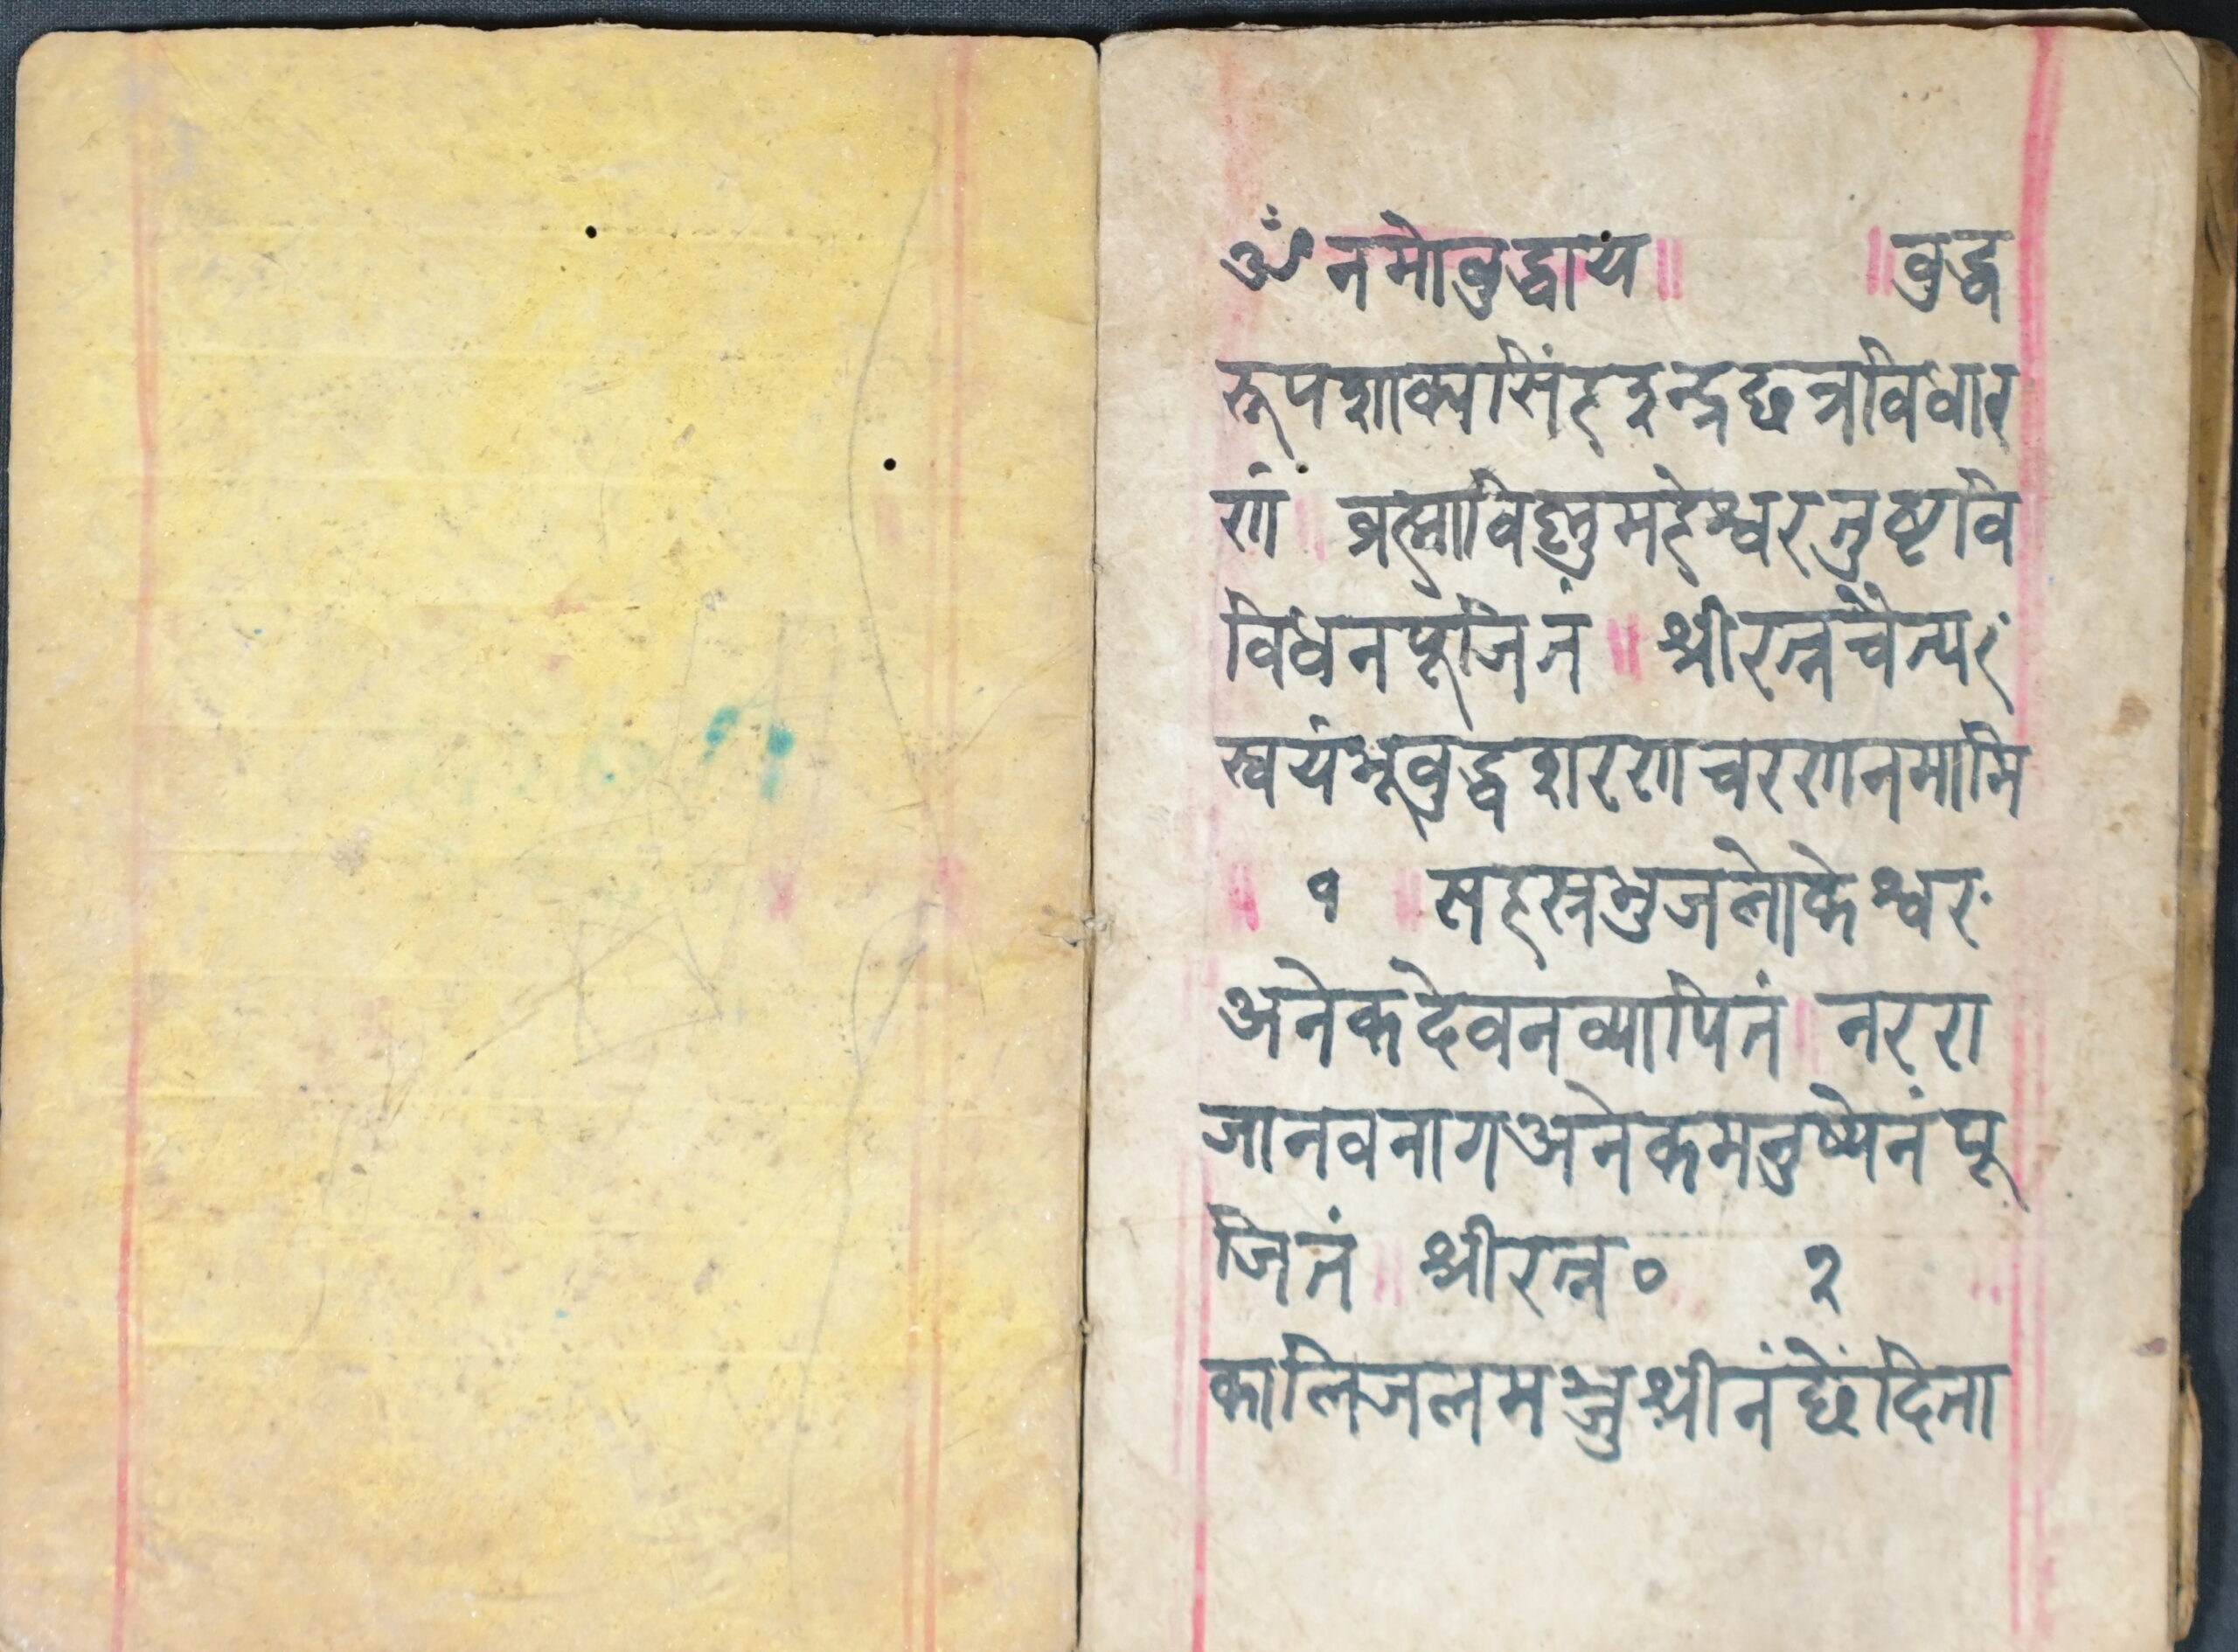 ॐ नमोवुद्धाय ॥ ॥ वुद्ध
रूपशाक्यसिंहइन्द्रछत्रविधार
णं ॥ व्रह्माविष्णुमहेश्वरतुष्टावि
विधनपूजितं ॥ श्रीरत्नचैत्यरं
स्वयंभूवुद्धशरणचरणनमामि
॥ १ ॥ सहस्रभुजलोकेश्वरं
अनेकदेवनव्यापितं ॥ नररा
जानवनागअनेकमनुष्येनंपू
जितं ॥ श्रीरत्न० ॥ २ ॥
कालिजलमञ्जुश्रीनंछेंदिता